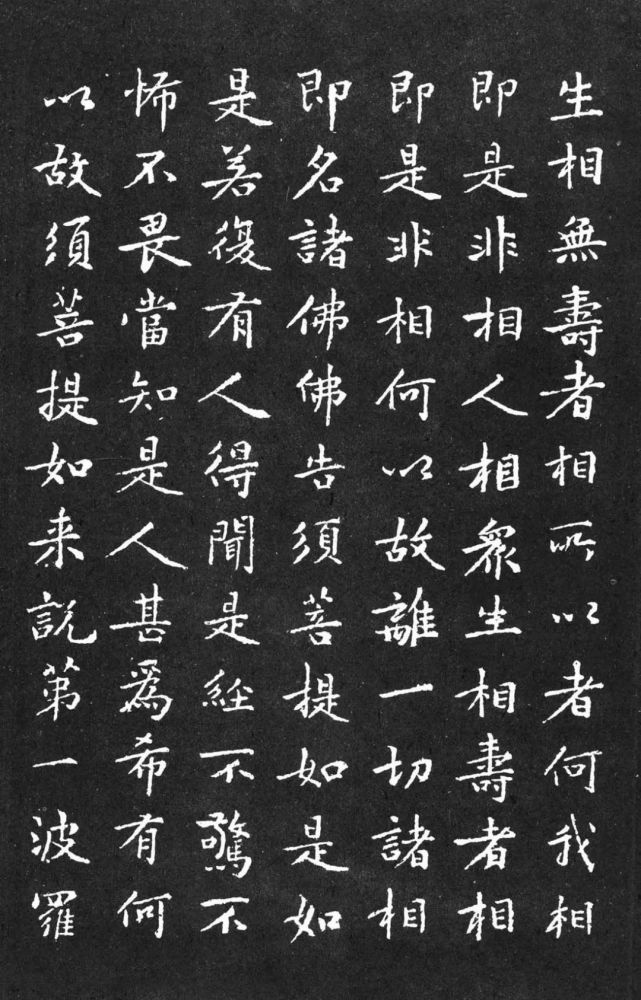 生相無壽者相所以者何我相
即是非相人相眾生相壽者相
即是非相何以故離一切諸相
即名諸佛佛告須菩提如是如
是若復有人得聞是經不驚不
怖不畏當知是人甚為希有何
以故須菩提如来說第一波羅